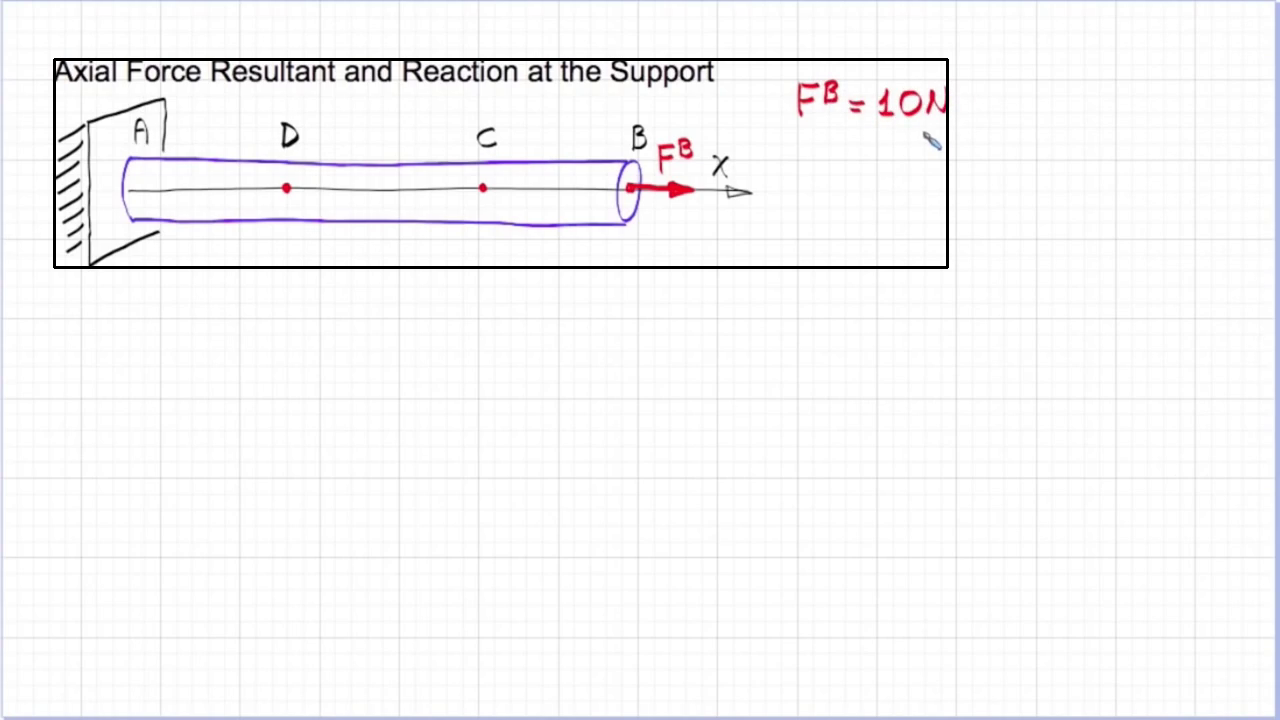 Axial Force Resultant and Reaction at the Support
F^B = 10N
A D C B
F^B X